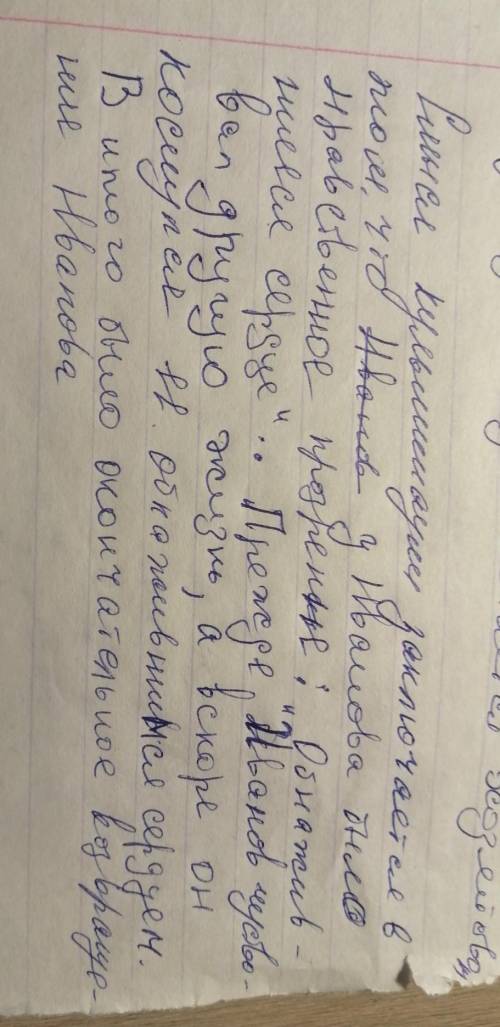 хозяйова
Смысл кульминации заключается в
том, что Иванов у Иванова было
нравственное прозрение; "Обнажив-
шееся сердце".. Прежде Иванов чувство-
вал другую жизнь, а вскоре он
коснулся Н. обнажившимся сердцем.
В итого было окончательное возвраще-
ние Иванова